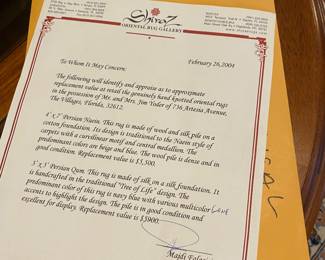 Shiraz
ORIENTAL RUG GALLERY
February 26, 2004
To Whom It May Concern:
The following will identify and appraise as to approximate
replacement value at retail the genuinely hand knotted oriental rugs
in the possession of Mr. and Mrs. Jim Yoder of 736 Artesia Avenue,
The Villages, Florida, 32612.
4' x 7' Persian Naein. This rug is made of wool and silk pile on a
cotton foundation. Its design is traditional to the Naein style of
carpets with a curvilinear motif and central medallion. The
predominant colors are beige and blue. The wool pile is dense and in
good condition. Replacement value is $5,500.
3' x 5' Persian Qum. This rug is made of silk on a silk foundation. It
is handcrafted in the traditional "Tree of Life" design. The
predominant color of this rug is navy blue with various multicolor
accents to highlight the design. The pile is in good condition and
excellent for display. Replacement value is $5900.
Majdi